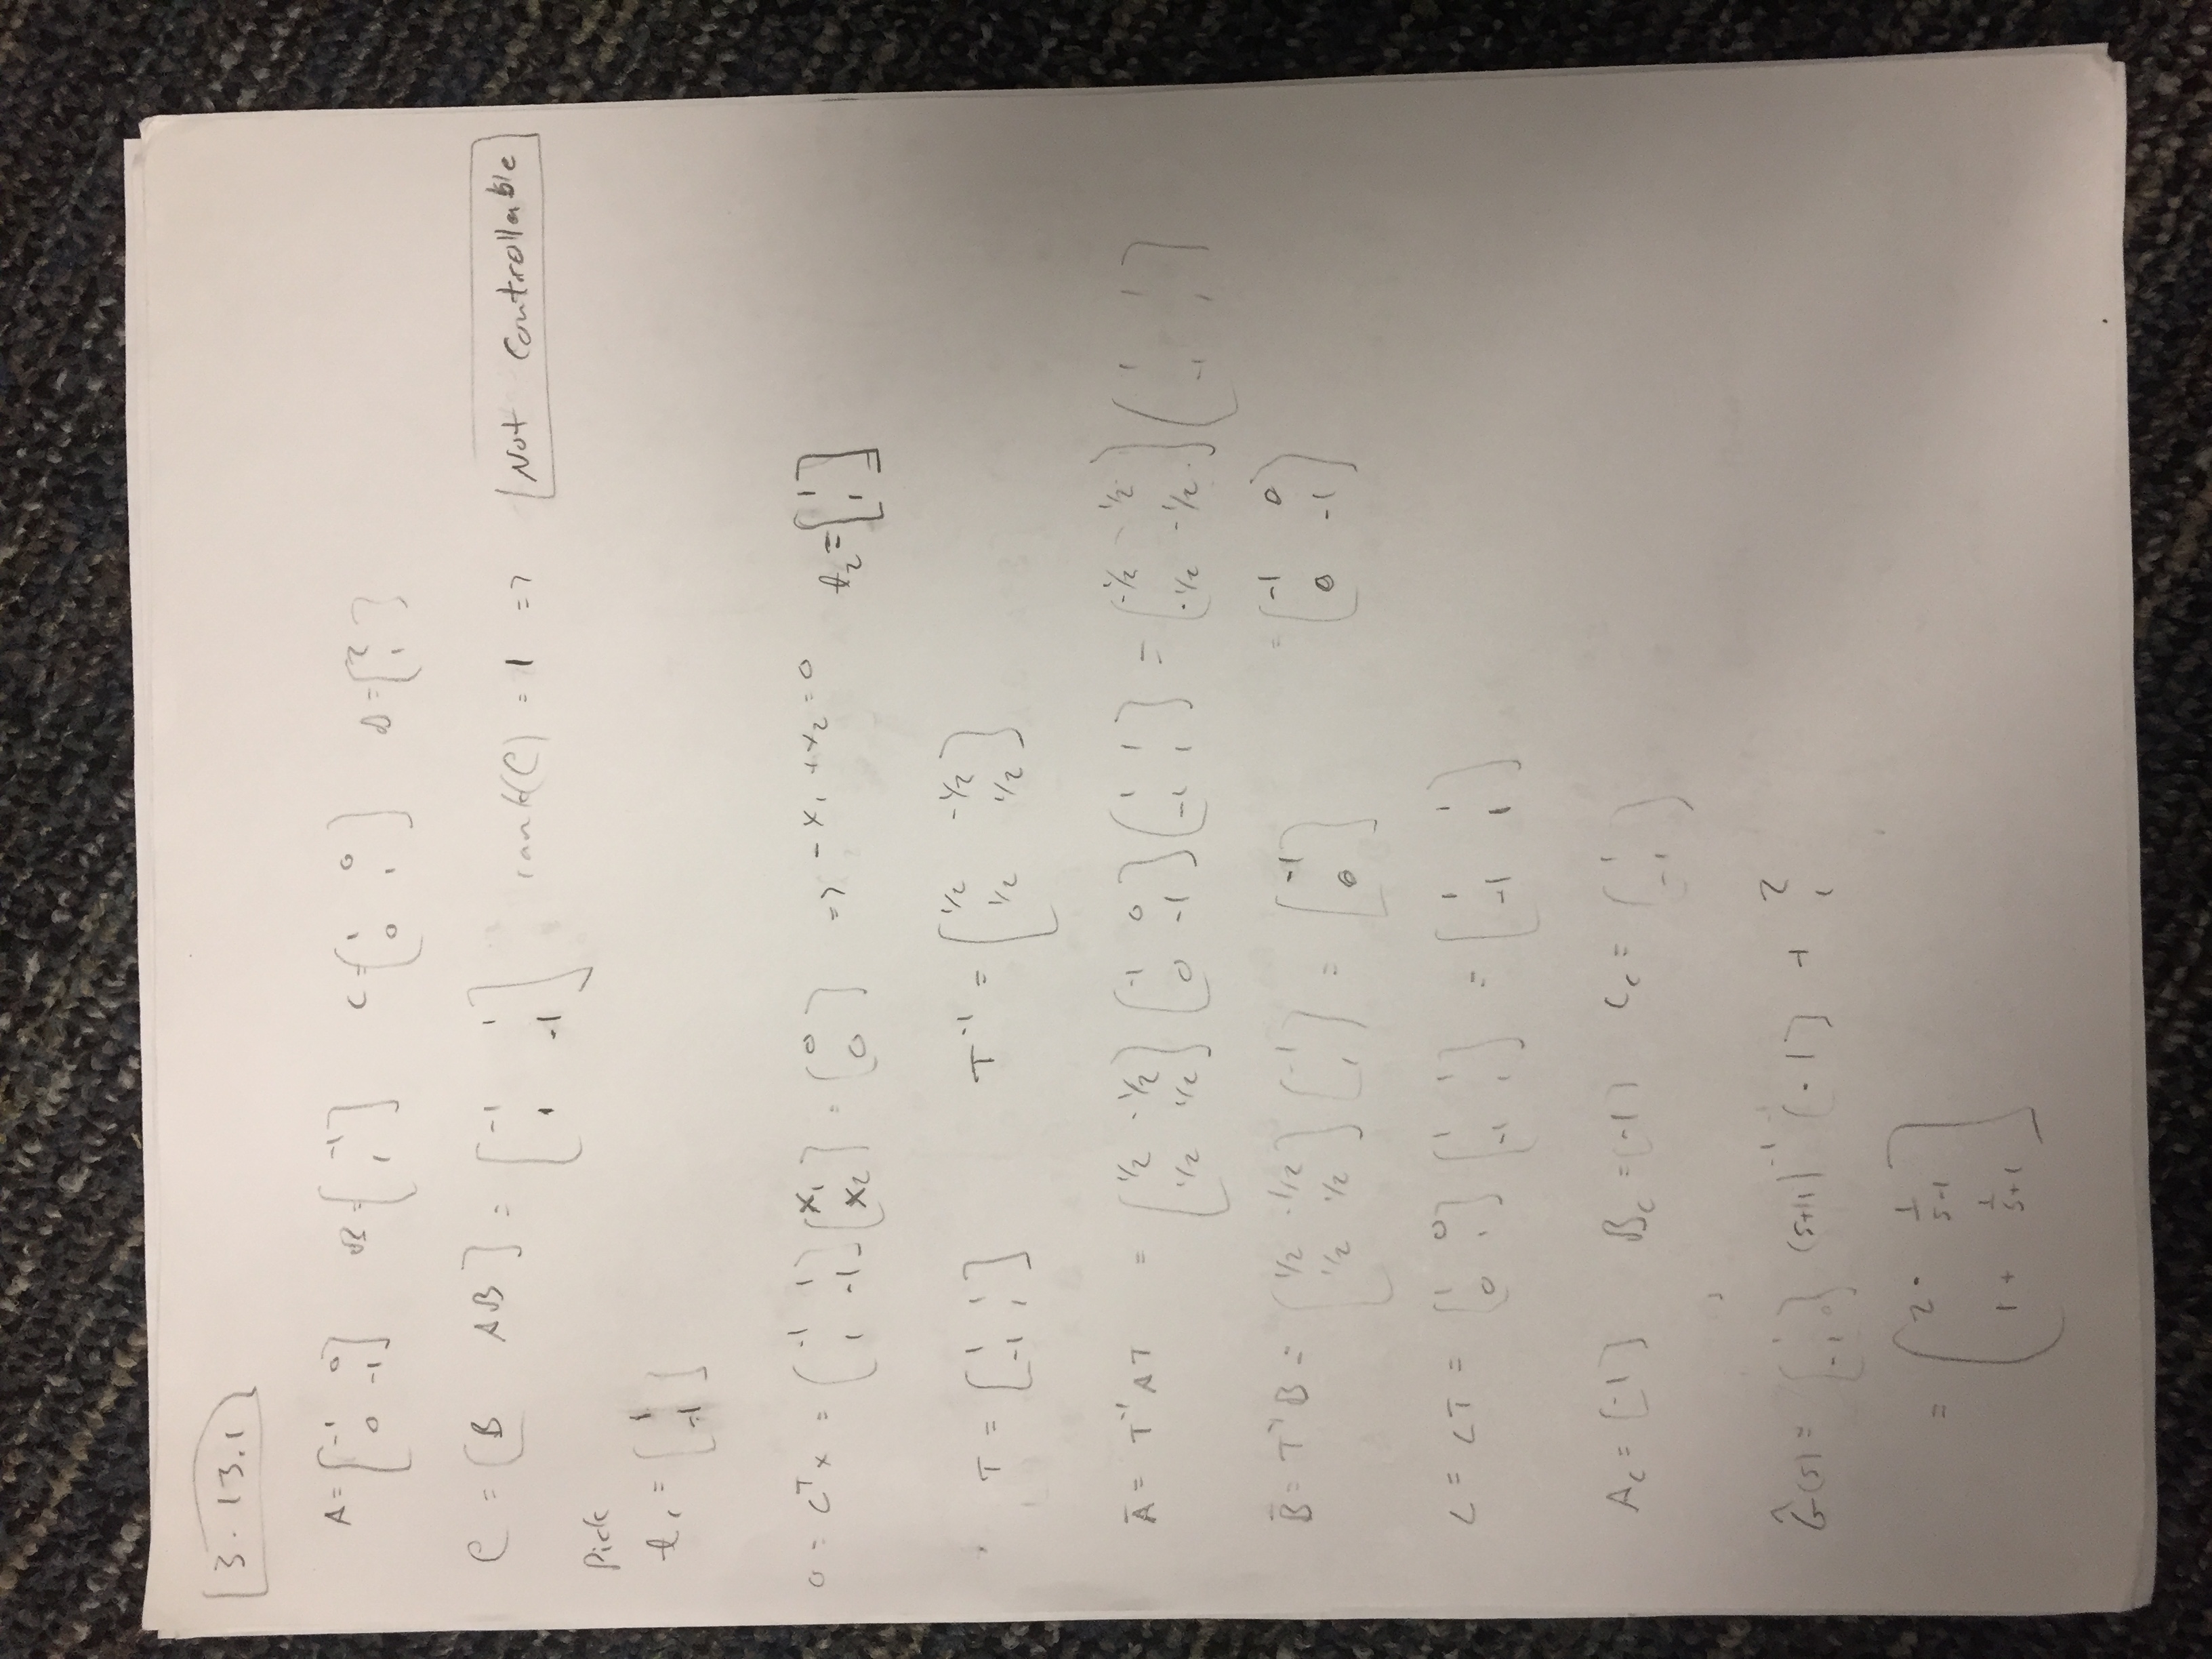 3.13.1
A = [-1 0; 0 -1] B = [-1; 1] C = [1 0; 0 1] D = [2; 1]
C = [B AB] = [-1 1; 1 -1] rank(C) = 1 => Not Controllable
Pick
t₁ = [1; -1]
0 = Cᵀx = [-1 1; 1 -1] [x₁; x₂] = [0; 0] => -x₁ + x₂ = 0 t₂ = [1; 1]
T = [1 1; -1 1] T⁻¹ = [1/2 -1/2; 1/2 1/2]
Ā = T⁻¹AT = [1/2 -1/2; 1/2 1/2] [-1 0; 0 -1] [1 1; -1 1] = [-1/2 1/2; -1/2 -1/2] [1 1; -1 1]
= [-1 0; 0 -1]
B̄ = T⁻¹B = [1/2 -1/2; 1/2 1/2] [-1; 1] = [-1; 0]
C = CT = [1 0; 0 1] [1 1; -1 1] = [1 1; -1 1]
A_c = [-1] B_c = [-1] C_c = [1; -1]
Ĝ(s) = [1; -1] (s+1)⁻¹ [-1] + 2 1
= [2 - 1/(s-1); 1 + 1/(s+1)]